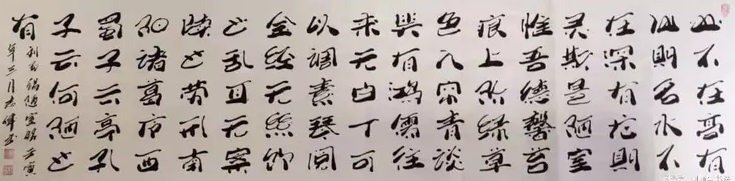 山不在高有
仙则名水不
在深有龙则
灵斯是陋室
惟吾德馨苔
痕上阶绿草
色入帘青谈
笑有鸿儒往
来无白丁可
以调素琴阅
金经无丝竹
之乱耳无案
牍之劳形南
阳诸葛庐西
蜀子云亭孔
子云何陋之
有
刘禹锡陋室铭壬寅
年三月